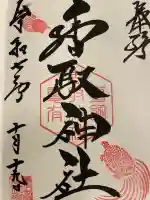 奉拝
香取神社
令和七年
十月十九日